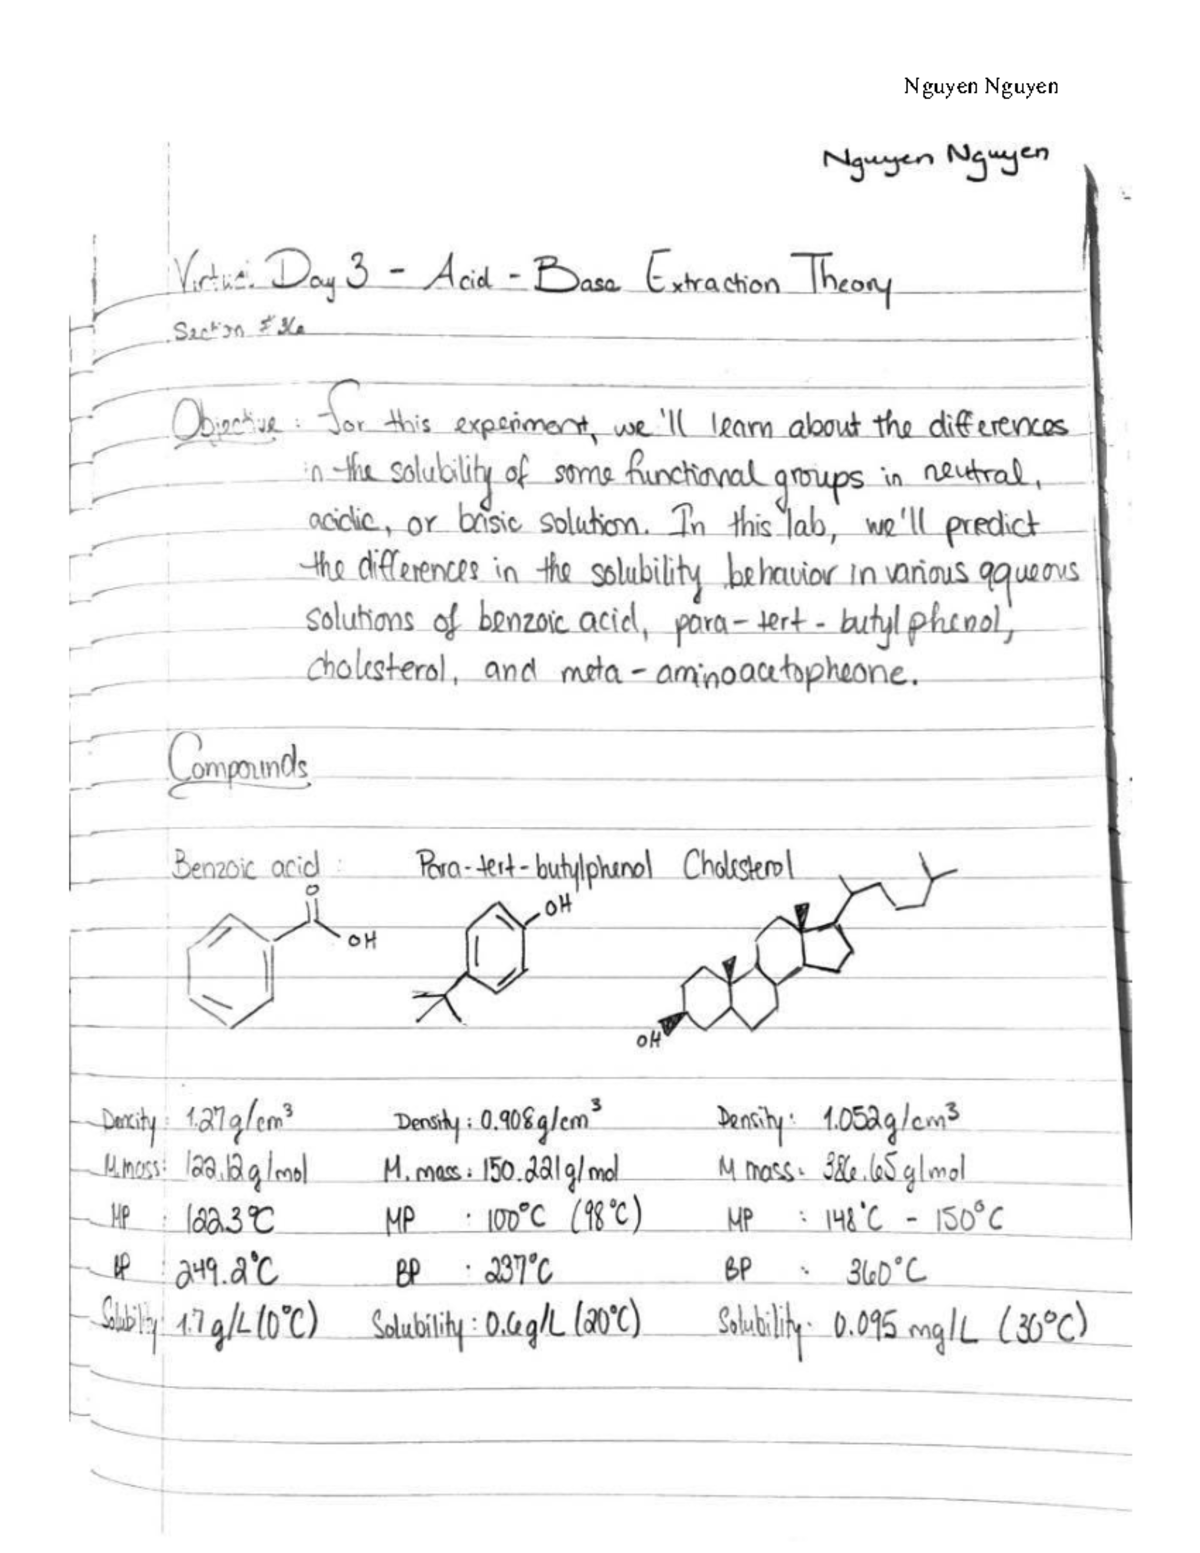 Nguyen Nguyen
Nguyen Nguyen
Virtual Day 3 - Acid - Base Extraction Theory
Section #
Objective : For this experiment, we'll learn about the differences
in the solubility of some functional groups in neutral,
acidic, or basic solution. In this lab, we'll predict
the differences in the solubility behavior in various aqueous
solutions of benzoic acid, para-tert-butylphenol,
cholesterol, and meta-aminoacetopheone.
Compounds
Benzoic acid : Para-tert-butylphenol Cholesterol
O
OH
OH
OH
Density : 1.27g/cm³ Density : 0.908g/cm³ Density : 1.052g/cm³
M.mass : 122.12g/mol M. mass : 150.221g/mol M mass : 386.65g/mol
MP : 122.3°C MP : 100°C (98°C) MP : 148°C - 150°C
BP : 249.2°C BP : 237°C BP : 360°C
Solubility : 1.7g/L (0°C) Solubility : 0.6g/L (20°C) Solubility : 0.095 mg/L (30°C)